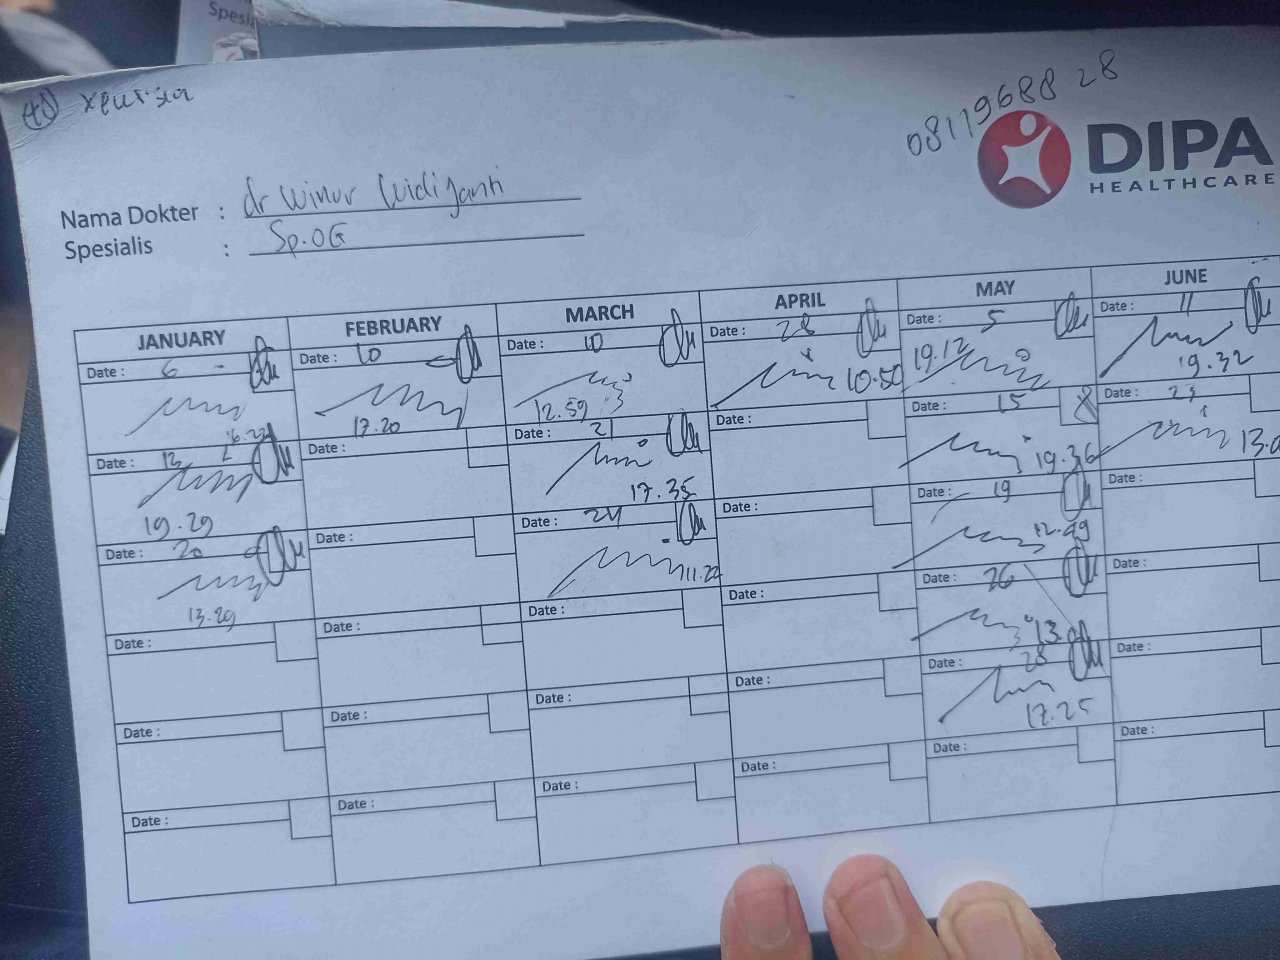 Spesi
08119688 28
DIPA
HEALTHCARE
Nama Dokter : dr Winur Widijanti
Spesialis : Sp.OG
JANUARY FEBRUARY MARCH APRIL MAY JUNE
Date : 6 Date : 10 Date : 10 Date : 28 Date : 5 Date : 11
17.20 12.59 10.50 19.12 19.32
Date : 13 Date : Date : 21 Date : Date : 15 Date : 23
19.29 17.35 19.36
Date : 20 Date : Date : 24 Date : Date : 19 Date :
13.29 11.22 12.49
Date : Date : Date : Date : Date : 26 Date :
Date : Date : Date : Date : Date : 28 Date :
17.25
Date : Date : Date : Date : Date : Date :